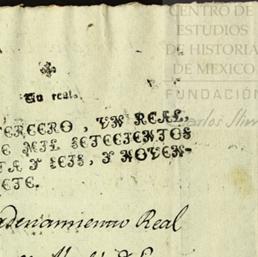 CENTRO DE
ESTUDIOS
DE HISTORIA
DE MEXICO
FUNDACIÓN
Carlos Slim
Un real.
TERCERO, VN REAL,
E MIL SETECIENTOS
TA Y SEIS, Y NOVEN-
ETE.
Real